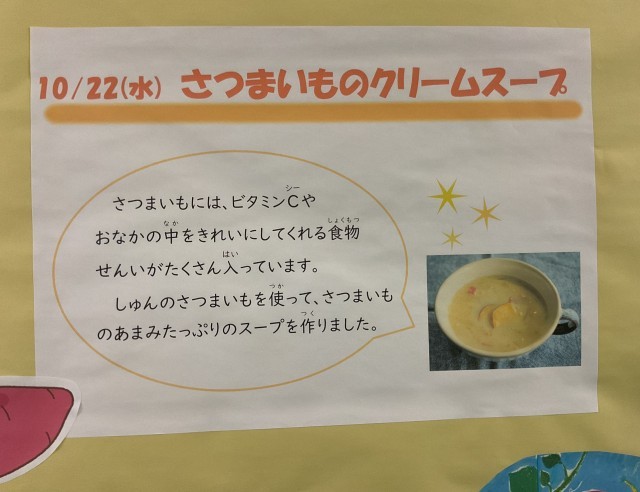 10/22(水) さつまいものクリームスープ
さつまいもには、ビタミンCや
おなかの中をきれいにしてくれる食物
せんいがたくさん入っています。
しゅんのさつまいもを使って、さつまいも
のあまみたっぷりのスープを作りました。